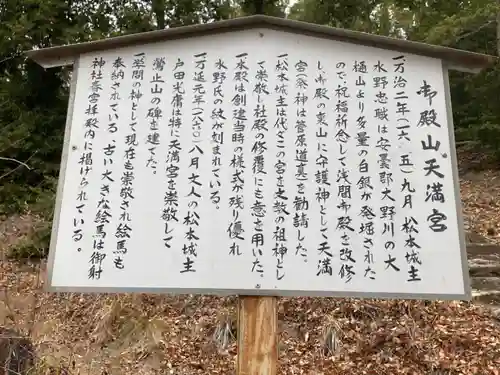 御殿山天満宮
一万治二年(一六五)九月松本城主
水野忠職は安曇郡大野川の大
樋山より多量の白銀が発掘された
ので、祝福祈念して浅間御殿を改修
し、御殿の東山に守護神として天満
宮(祭神は菅原道真)を勧請した。
一松本城主は代々この宮を文教の祖神とし
て崇敬し社殿の修覆にも意を用いた。
一本殿は創建当時の様式が残り優れ
(水野氏は)の紋が刻まれている。
一万延元年(一八六〇)八月文人の松本城主
戸田光庸は特に天満宮を崇敬して
鶯止山の碑を建てた。
一学問の神として現在も崇敬され絵馬も
奉納されている。古い大きな絵馬は御射
神社春宮拝殿内に掲げられている。